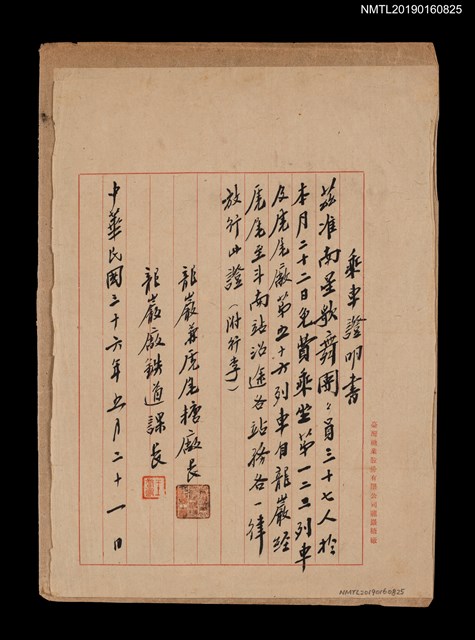 NMTL20190160825
乘車證明書
茲准南星歌舞團團員三十七人於
本月二十二日免費乘坐第一二三列車
及虎尾廠第五十六列車自龍巖經
虎尾至斗南站沿途各站務各一律
放行此證(附行李)
龍巖兼虎尾糖廠長
龍巖廠鉄道課長
中華民國三十六年五月二十一日
NMTL20190160825